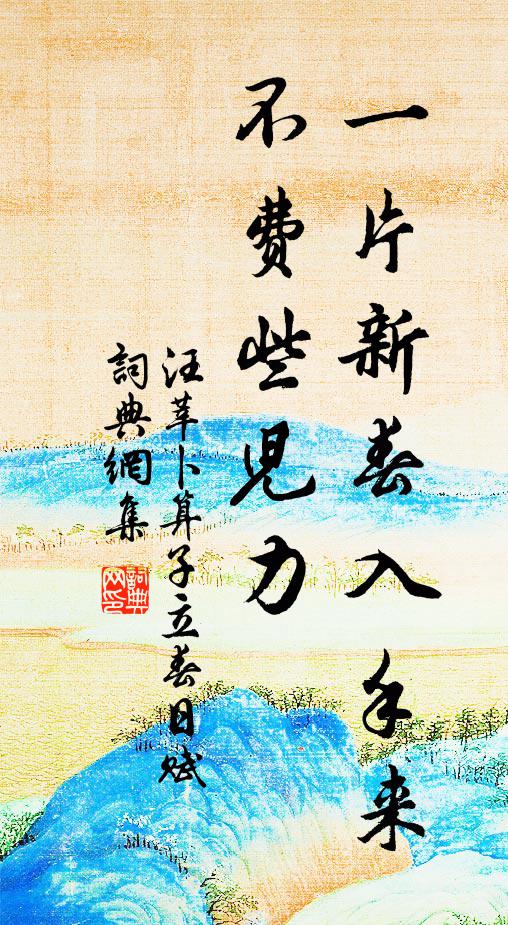 一片新春入手来
不费些児力
汪莘卜算子立春日赋
詞典網集
詞典網印